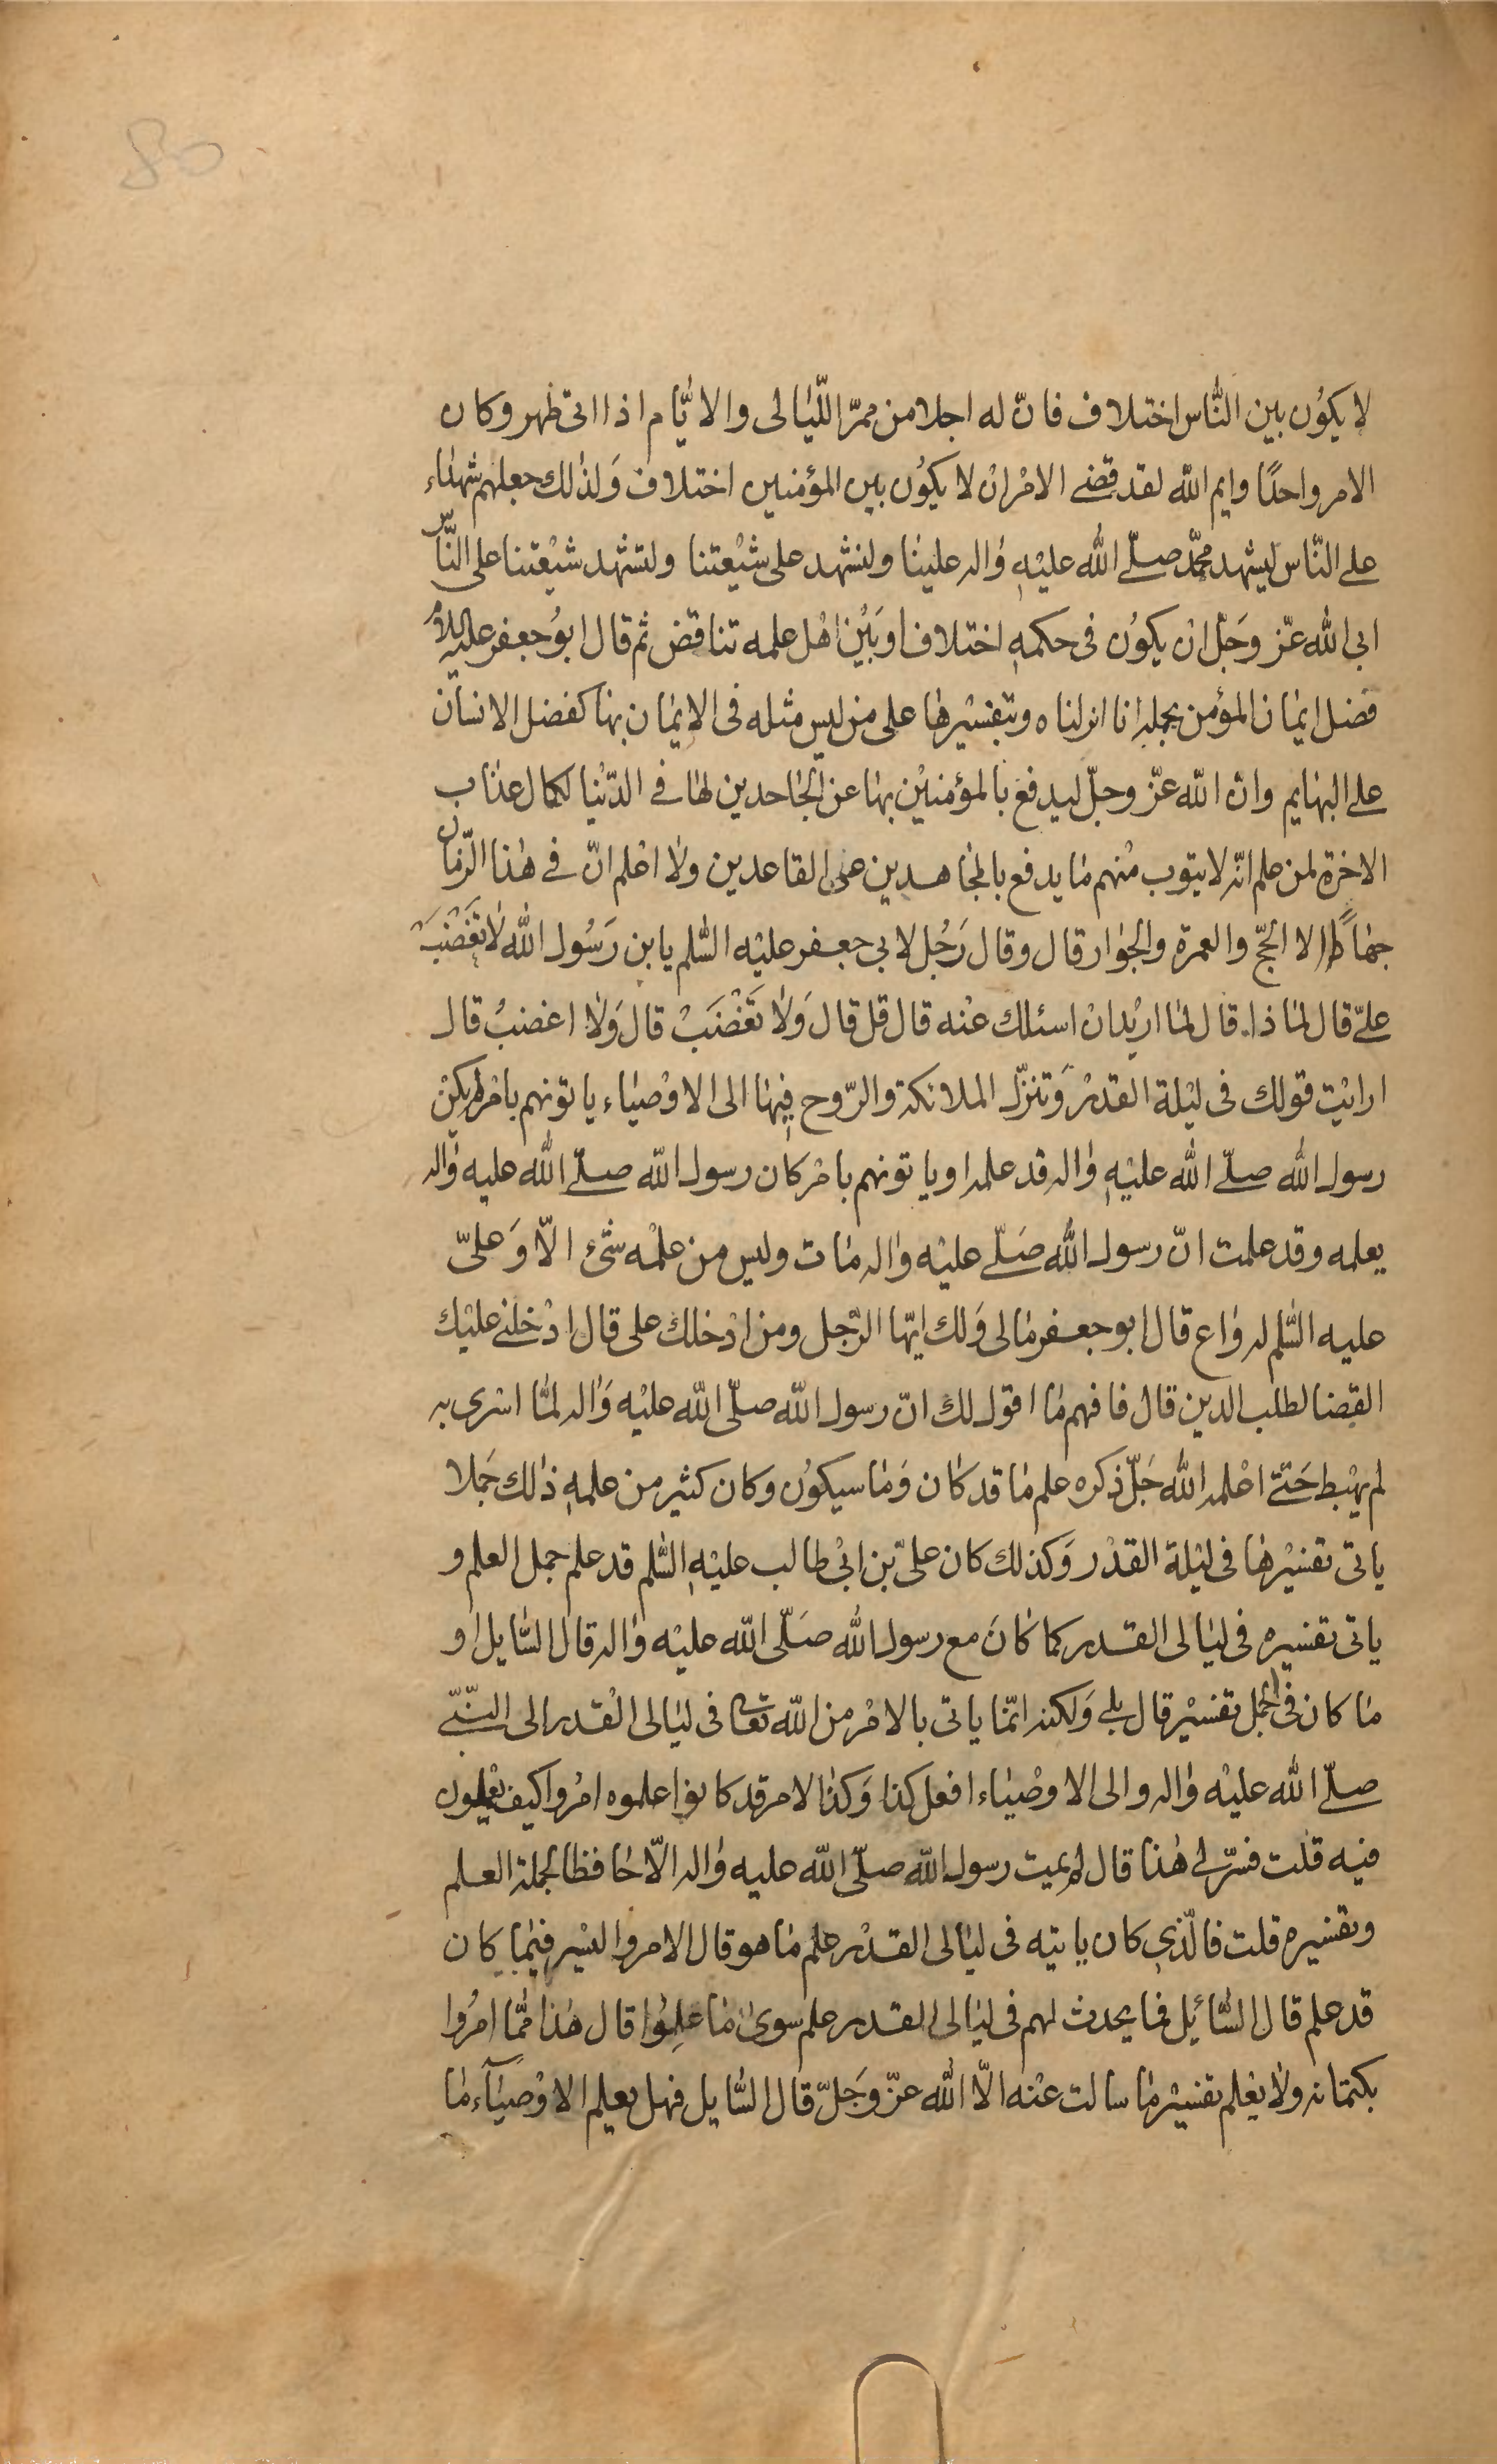 80
لا يكوُن بين النّاس اختلاف فانّ له اجلا من ممرّ اللّيالى والايّام اذا اتى ظهر وكان
الامر واحدًا وايم اللّه لقد قضے الامْر ان لا يكوُن بين المؤمنين اختلاف وَلذلك جعلهم شهداء
على النّاس ليشهد محمّد صلّى اللّه عليْهِ واله علينا ولنشهد على شيْعتنا ولتشهد شيْعتنا على النّاس
ابى اللّه عزّ وَجَلّ ان يكوُن فى حكمهِ اختلاف او بَيْن اهْل علمه تناقض ثم قال ابوُ جعفر عليه السلام
فضل ايمان المؤمن بجمله انا انزلناه وبتفسْيرها على من ليس مثله فى الايمان بها كفضل الانسان
على البهايم وان اللّه عزّ وجلّ ليدفع بالمؤمنيْن بها عن الجاحدين لها فى الدّنْيا لكمال عذاب
الاخرة لمن علم انّه لا يتوب منْهم ما يدفع بالمجاهدين عن القاعدين ولا اعْلم انّ فى هذا الزّمان
جهاداً الا الحجّ والعمرة والجوار قال وقال رَجُل لابى جعفر عليْه السّلم يابن رَسُول اللّه لا تغْضَبْ
علىّ قال لماذا قال لما اريْد انْ اسئلك عنْه قال قل قال وَلا تَغْضَبْ قال وَلا اغضبُ قال
ارايْت قولك فى ليْلة القدْر وَتنزّل الملائكة والرّوح فِيها الى الاوْصياء ياتونهم بامْر لم يكنْ
رسول اللّه صلّى اللّه عليْهِ واله قد علمه او ياتونهم بامْر كان رسول اللّه صلّى اللّه عليه واله
يعلمه وقد علمت انّ رسول اللّه صَلّى عليْه واله مات وليس من علمْه شئ الّا وَعلىّ
عليه السّلم له واع قال ابو جعفر مالى وَلك ايّها الرّجل ومن ادْخلك على قال ادْخلنے عليْك
القضا لطلب الدين قال فافهم ما اقول لك انّ رسول اللّه صلّى اللّه عليْه وَاله لمّا اسْرى به
لم يهْبط حَتّے اعْلمه اللّه جَلّ ذكره علم ما قد كان وَما سيكوُن وكان كثير من علمهِ ذلك جَملا
ياتى تفسْيرها فى ليْلة القدْر وَكذلك كان علىّ بن ابىْ طالب عليْهِ السّلم قد علم جمل العلم و
ياتى تفسْيره فى ليالى القدر كما كانَ مع رسول اللّه صَلّى اللّه عليْه واله قال السّايل او
ما كان فى الجمل تفسْير قال بلے وَلكنه انمّا ياتى بالامْر من اللّه تعالى فى ليالى القْدر الى النّبّے
صلّى اللّه عليْه واله والى الاوصْياء افعل كذا وَكذا لامر قد كانوا علموه امرُوا كيف يعْملون
فيه قلت فسّر لى هذا قال لم يمت رسول اللّه صلّى اللّه عليه واله الّا حافظا لجملة العلم
وتفسْيره قلت فالّذى كان ياتيه فى ليالى القدْر علم ما هو قال الامر واليسْر فِيما كان
قد علم قال السّائيل فما يحدث لهم فى ليالى القدر علم سوى ما علِموُا قال هذا ممّا امرُوا
بكتمانه ولا يعْلم تفسْير ما سالت عنْه الّا اللّه عزّ وَجَلّ قال السّايل فهل يعلم الاوْصيآء ما